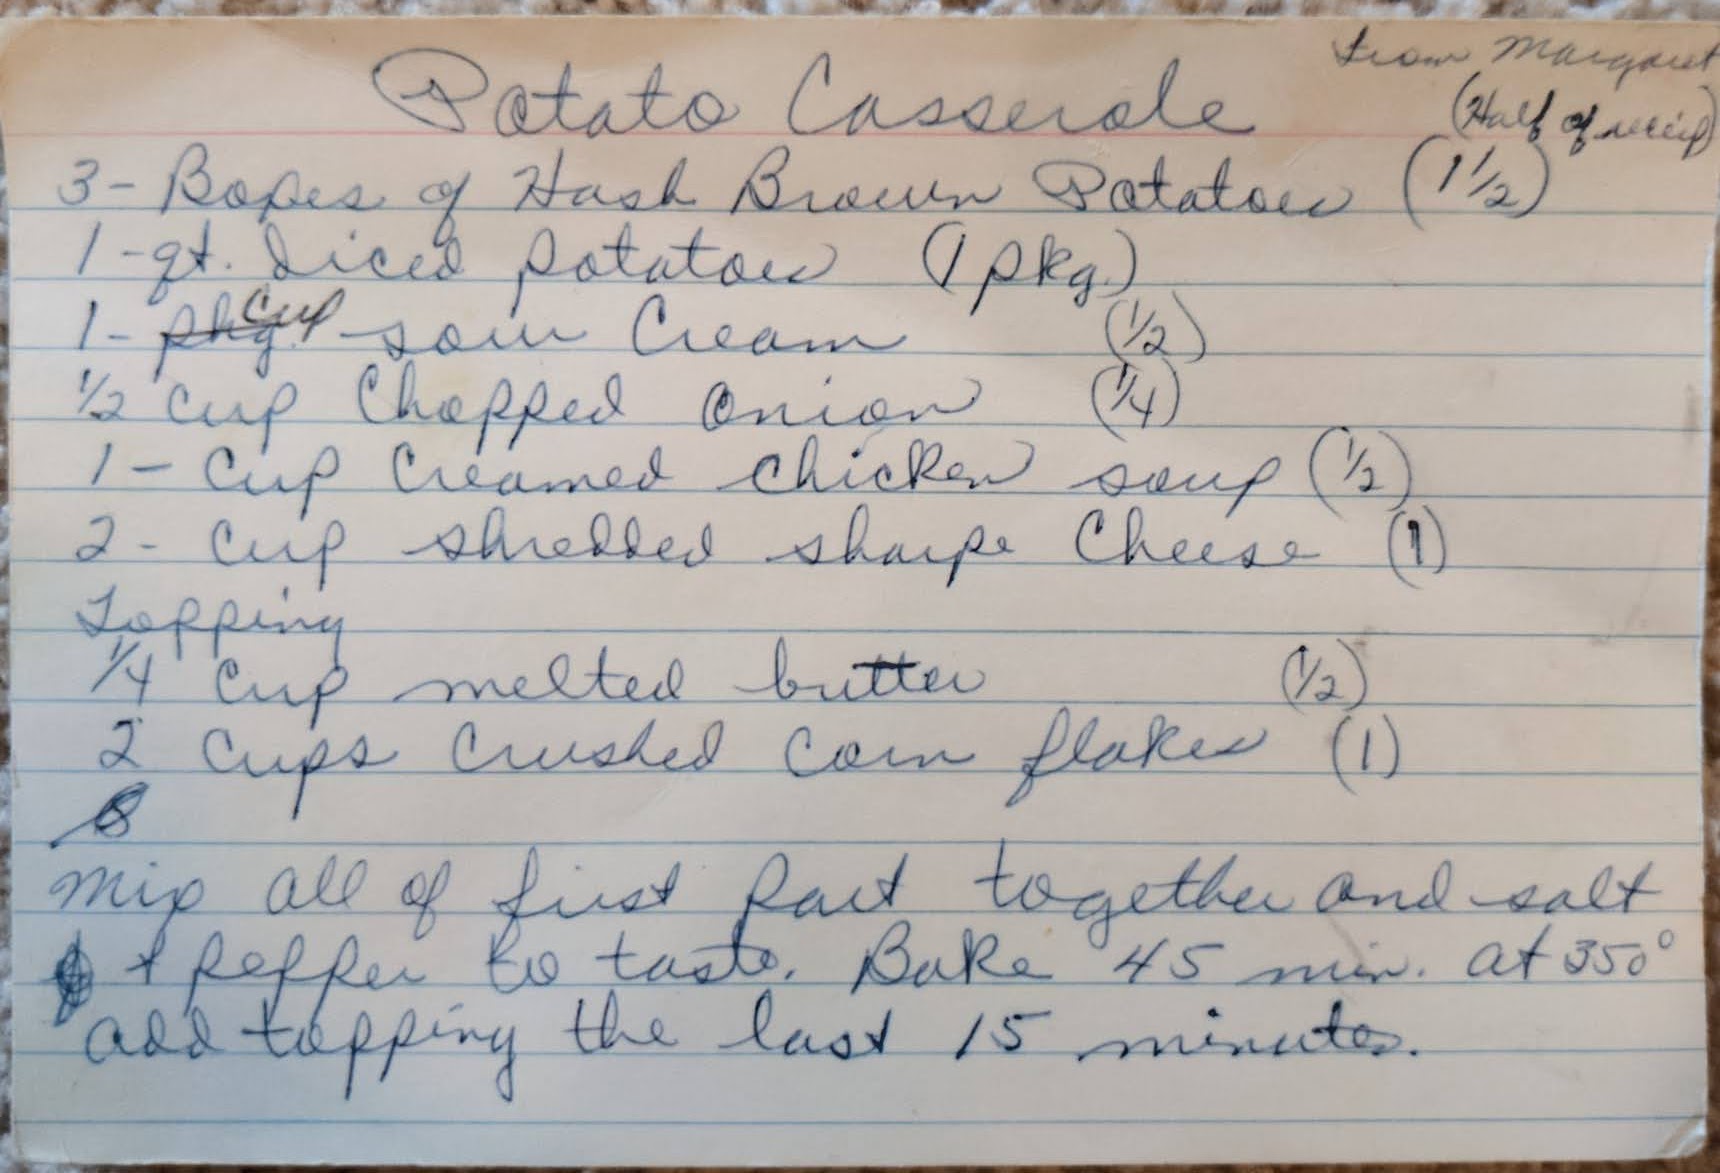 from Margaret
Potato Casserole (Half of recip)
3- Boxes of Hash Brown Potatoes (1 1/2)
1-qt. diced potatoes (1 pkg.)
1- pkg. cup sour Cream (1/2)
1/2 cup Chopped onion (1/4)
1- cup Creamed chicken soup (1/2)
2- cup shredded sharpe Cheese (1)
Topping
1/4 cup melted butter (1/2)
2 cups crushed corn flakes (1)
Mix all of first part together and salt
+ pepper to taste. Bake 45 min. at 350°
add topping the last 15 minutes.